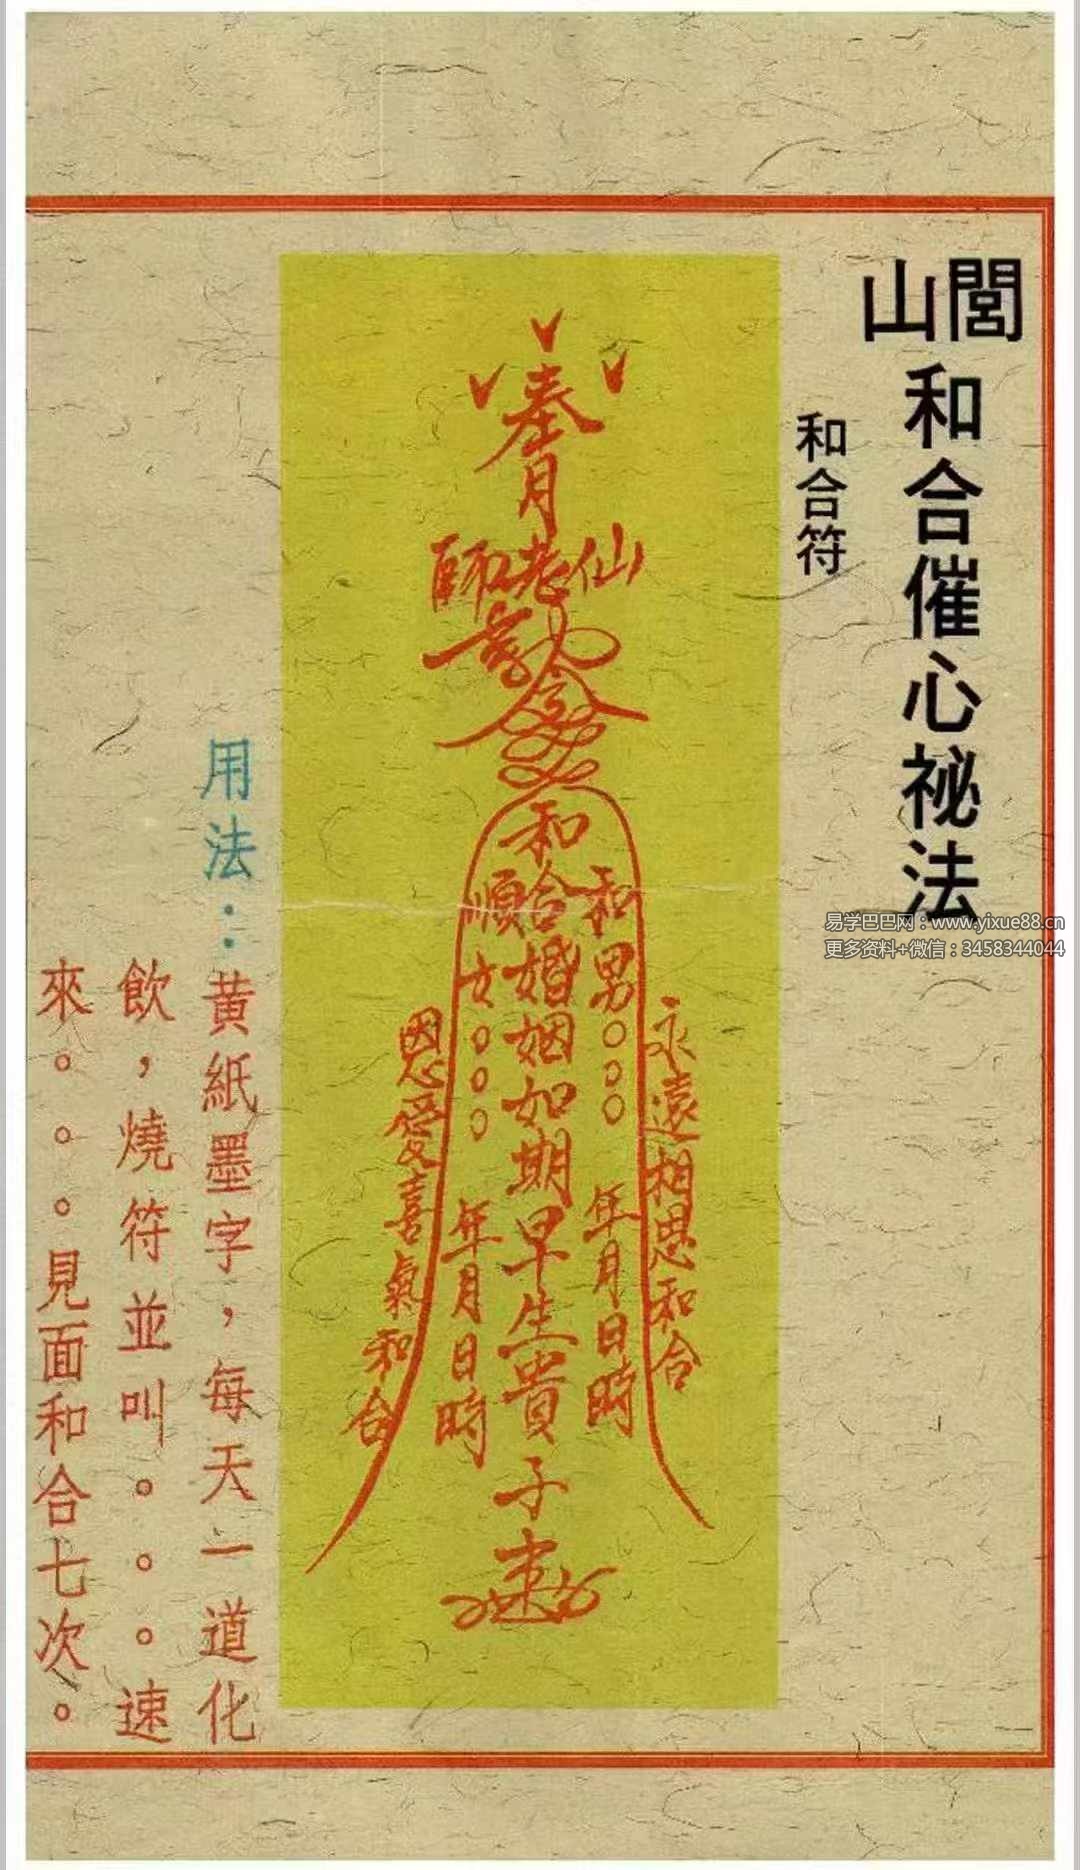 閭山
和合催心祕法
和合符
奉月
仙老師
令
和合婚姻如期早生貴子速
和男○○○ 年月日時
順女○○○ 年月日時
永遠相思和合
恩愛喜氣和合
用法：黃紙墨字，每天一道化
飲，燒符並叫。。。速
來。。。見面和合七次。
易学巴巴网：www.yixue88.cn
更多资料+微信：3458344044